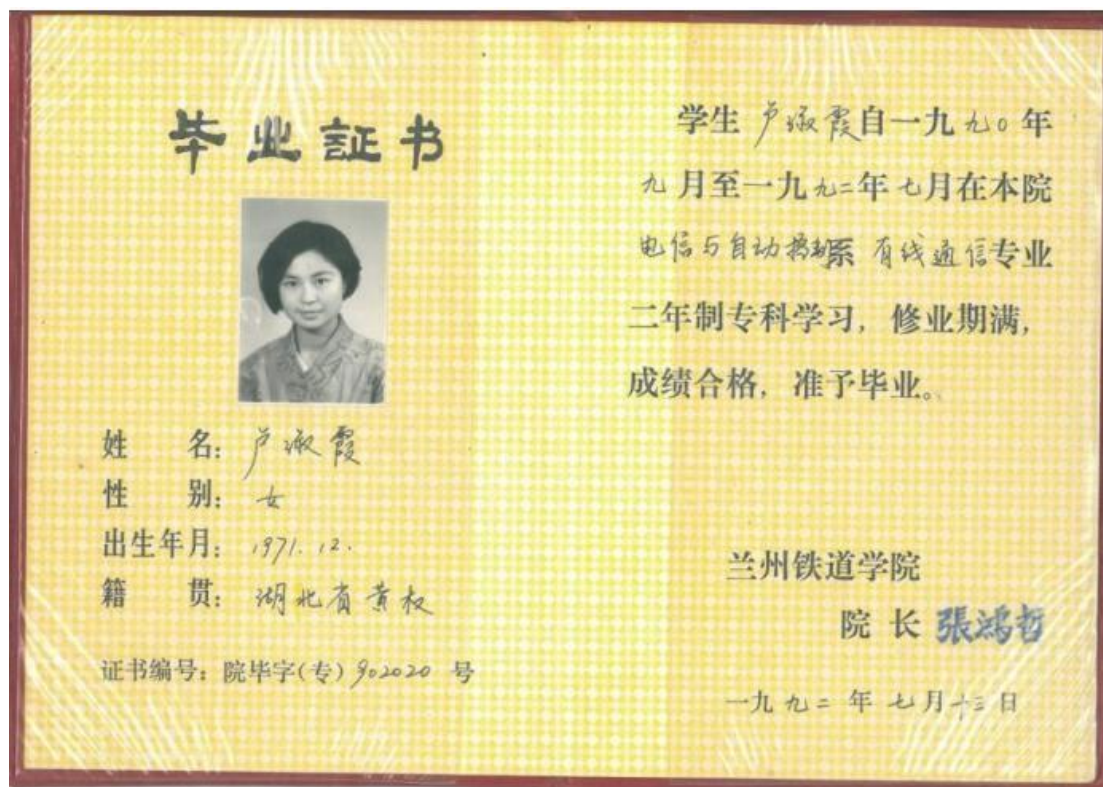 毕业証书
姓 名: 卢淑霞
性 别: 女
出生年月: 1971.12.
籍 贯: 湖北省黄
证书编号: 院毕字(专)902020 号
学生 卢淑霞自一九九0年
九月至一九九二年七月在本院
电信与自动控制系 有线通信专业
二年制专科学习, 修业期满,
成绩合格, 准予毕业。
兰州铁道学院
院 长 張鸿哲
一九九二年七月十三日